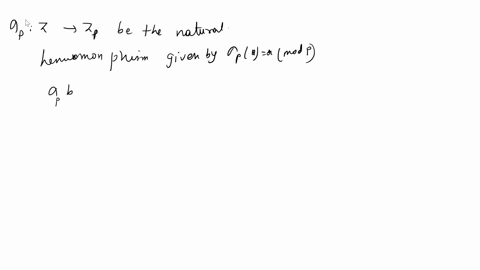 σ_p : Z → Z_p be the natural
homomorphism given by σ_p(a) = a (mod p)
σ_p b